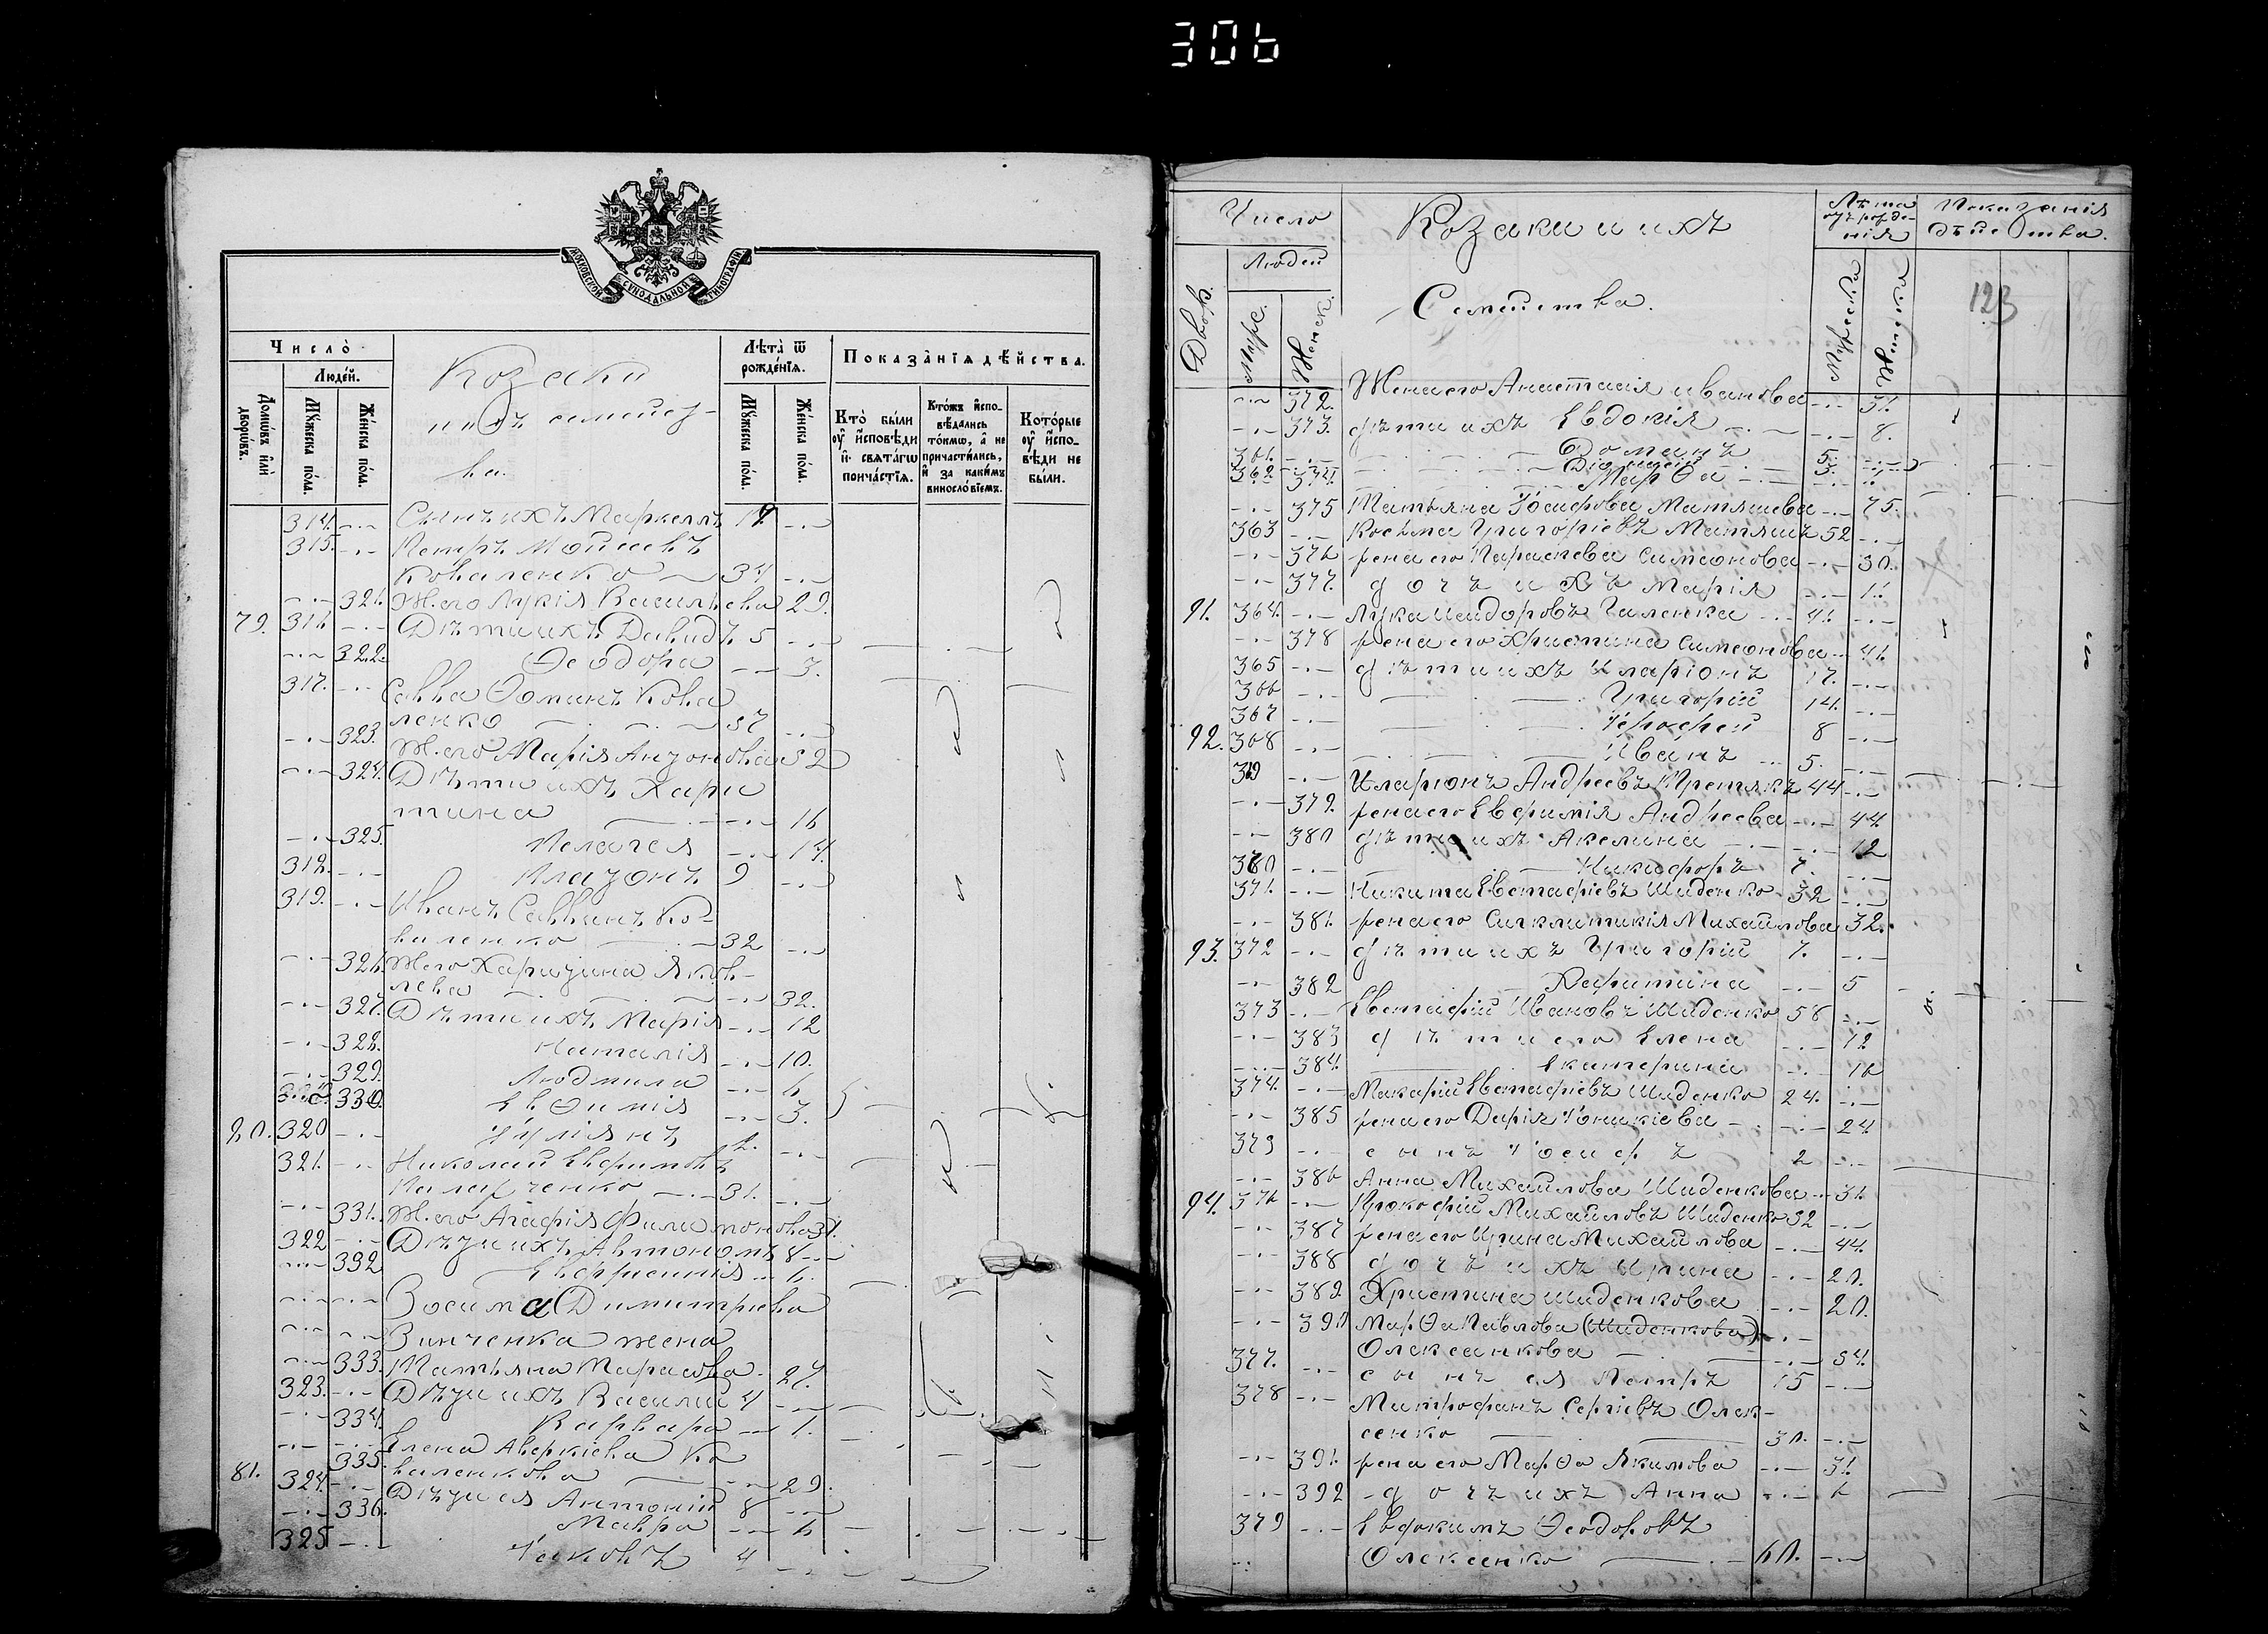 306
МОСКОВСКОЙ СѴНОДАЛЬНОЙ ТИПОГРАФІИ
Число̀
Люде́й.
Домѡ́въ и҆лѝ дворѡ́въ.
Мꙋ́жеска по́ла.
Же́нска по́ла.
Козаки
ихъ семейст-
ва.
Лѣта̀ ѿ рожде́нїѧ.
Мꙋ́жеска по́ла.
Же́нска по́ла.
Показа̑нїѧ дѣ́йства.
Кто̀ бы́ли ᲂу҆ и҆сповѣ́ди и҆ свѧта́гѡ причастїѧ.
Кто́жъ и҆сповѣ́дались то́кмѡ, а҆ не причасти́лись, и҆ за каки́мъ винословїемъ.
Кото́рые ᲂу҆ и҆сповѣ́ди не бы́ли.
314. Сынъ ихъ Маркеллъ 19
315. Петръ Мойсеевъ
Коваленко 34
321. Ж. его Лукія Василь ева 29.
79. 316. Дѣти ихъ Давидъ 5
322. Ѳеодора 3.
317. Савва Ѳоминъ Кова
ленко 57
323. Ж. его Марія Антонова 52
324. Дѣти ихъ Хари
тина 16
325. Пелагея 14.
318. Платонъ 9
319. Иванъ Саввинъ Ко-
валенко 32
326. Ж его Харитина Яков-
лева 32.
327. Дѣти ихъ Марія 12
328. Наталія 10.
329. Людмила 6
330. Евѳимія 3.
80. 320 Іуліанъ 2.
321. Николай Евфимовъ
31.
331. Ж. его Агафія Филимонова 31.
322 Дѣти ихъ Автономъ 8
332 Евфросинія 6.
Зосима Димитріева
Зинченка жена
333. Татьяна Тарасова 27.
323. Дѣти ихъ Василій 4
334. Варвара 1.
Елена Аверкіева Ко
335. валенкова 29.
81. 324. Дѣти ея Антоній 8
336. Мавра 6
325 Іаковъ 4
Число
Людей
Дворъ
Мужс.
Женск.
Козаки и ихъ
Семейства.
Лѣта отъ рожденія
Мужеска
Женска
Показанія дѣйства.
123
372. Жена его Анастасія Иванова 31.
373. дѣти ихъ Евдокія 8.
361. Романъ 5.
362 374. Марѳа
375 Татьяна Іосифова Матяшева 75.
363 Косьма Григоріевъ Матяшъ 52
376 жена его Параскева Симеонова 30.
377. дочь ихъ Марія 11.
91. 364. Лука Исидоровъ Галенка 41.
378 жена его Христина Симеонова 41.
365 дѣти ихъ Иларіонъ 17.
366 Григорій 14.
367 Іерофей 8
92. 368 Иванъ 5.
369 Иларіонъ Андреевъ Третякъ 44
379. жена его Евфимія Андреева 44.
380 дѣти ихъ Акелина 12
370 Никифоръ 7.
371. Никита Евстафіевъ Шиденко 32
381. жена его Сигклитикія Михайлова 32.
93. 372 дѣти ихъ Григорій 7.
382 Харитина 5
373 Евстафій Ивановъ Шиденко 58
383 дѣти его Елена 19.
384. Екатерина 16
374. Макарій Евстафіевъ Шиденко 24.
385 жена его Дарія Іоникіева 24.
375 сынъ Іосифъ 2
386 Анна Михайлова Шиденкова 31.
94. 376 Прокофій Михайловъ Шиденко 32
387 жена его Ирина Михайлова 44.
388 дочь ихъ Ирина 20.
389. Христина Шиденкова 20.
390 Марѳа Павлова (Шиденкова)
Олексенкова 54.
377. сынъ ея Петръ 15
378 Митрофанъ Сергіевъ Олек-
сенко 30.
391. жена его Марѳа Якимова 31.
392 дочь ихъ Анна 6
379 Евдокимъ Ѳеодоровъ
Олексенко 60.